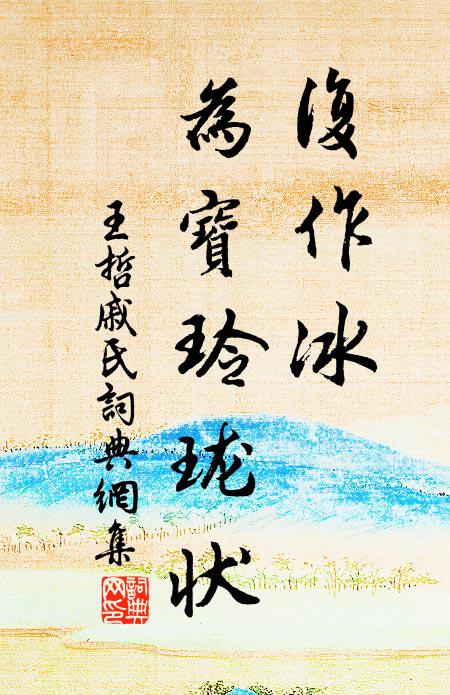 復作冰
為寶玲瓏状
王哲戚氏詞典網集
詞典网印